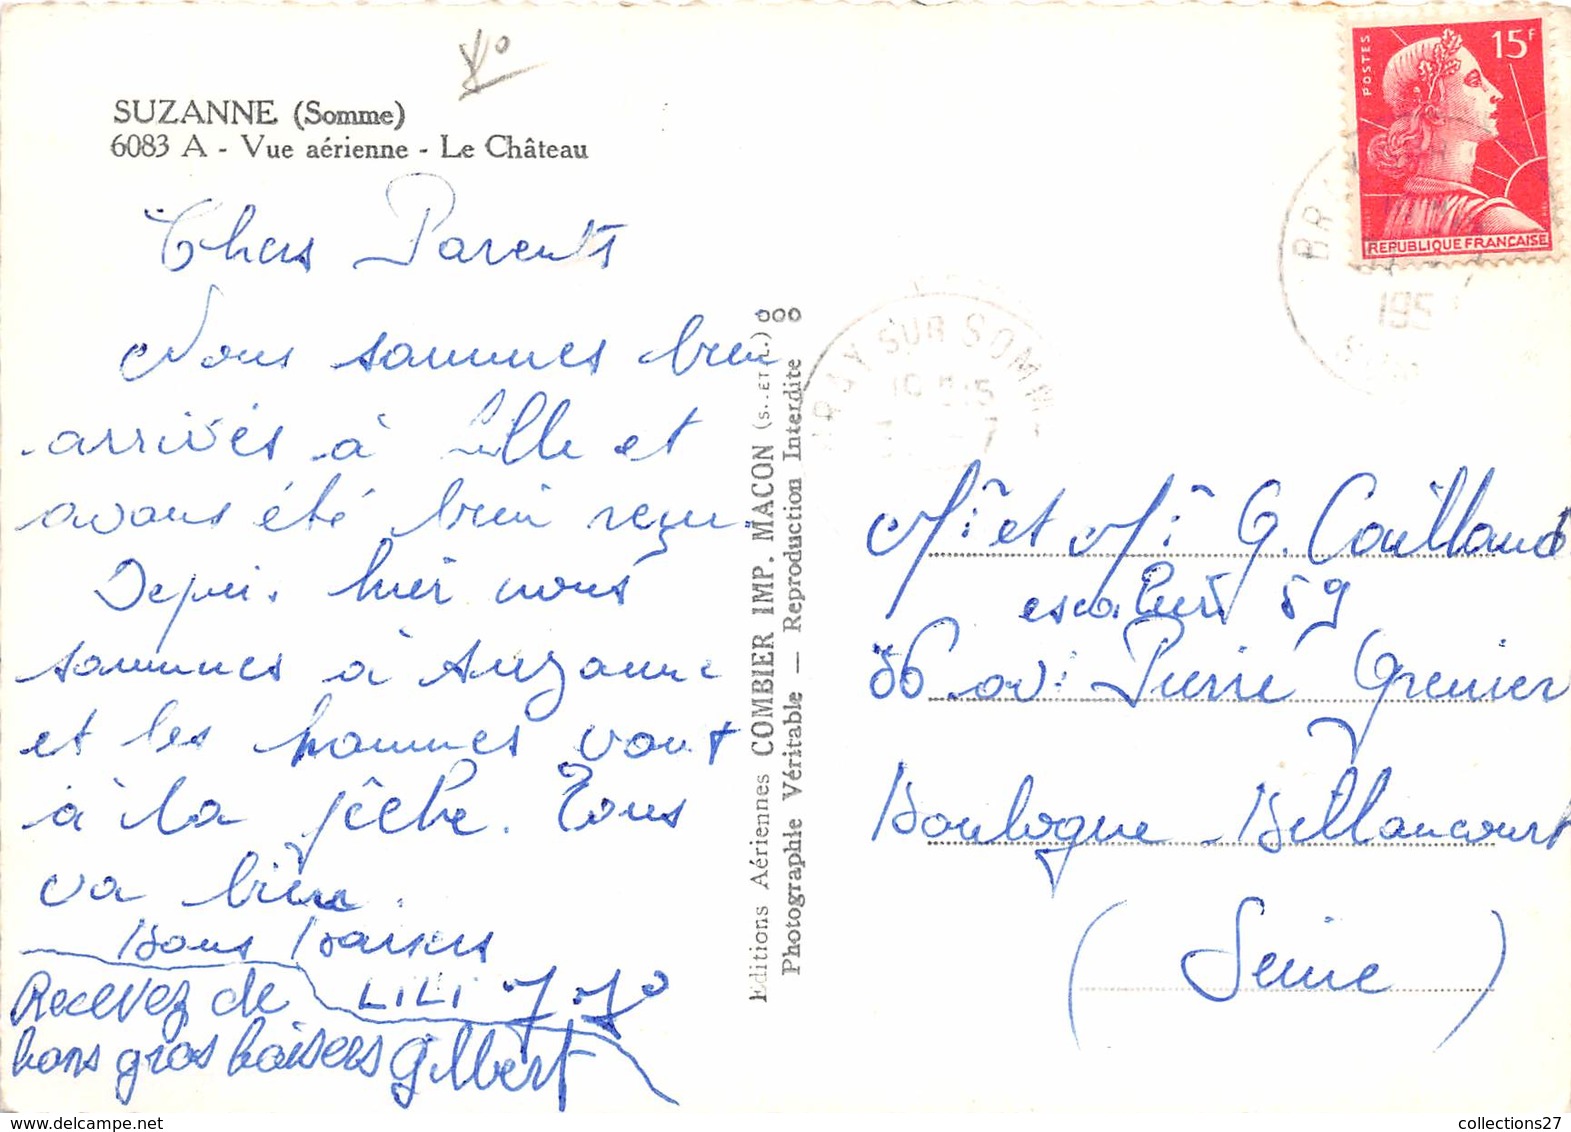 SUZANNE (Somme)
6083 A - Vue aérienne - Le Château
Chers Parents
Nous sommes bien
arrivés à Lille et
avons été bien reçu
Depuis hier nous
sommes à Suzanne
et les hommes vont
à la pêche. Tous
va bien.
Bons baisers
LILI
Recevez de
bons gros baisers Gilbert
Editions Aériennes COMBIER IMP. MACON (S.-ET-L.)
Photographie Véritable — Reproduction Interdite
POSTES
15F
REPUBLIQUE FRANÇAISE
BRAY SUR SOMME
195
Mr et Mme G. Caillaud
escalier 59
36 av. Pierre Grenier
Boulogne-Billancourt
(Seine)
collections27